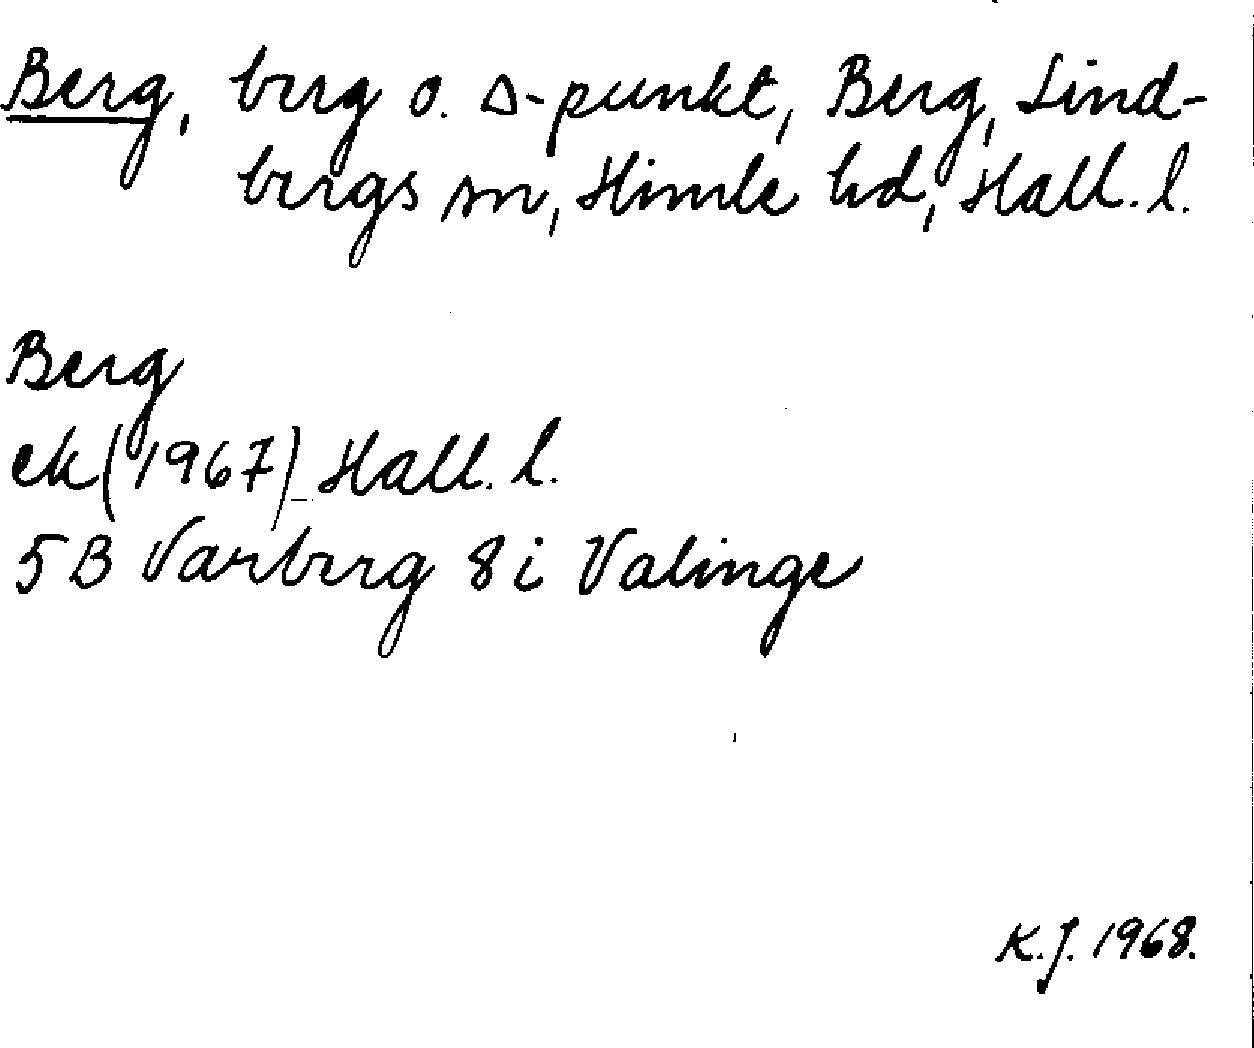 Berg, berg o. Δ-punkt, Berg, Lind-
bergs sn, Himle hd, Hall. l.
Berg
ek (1967) Hall. l.
5B Varberg 8i Valinge
K.J. 1968.